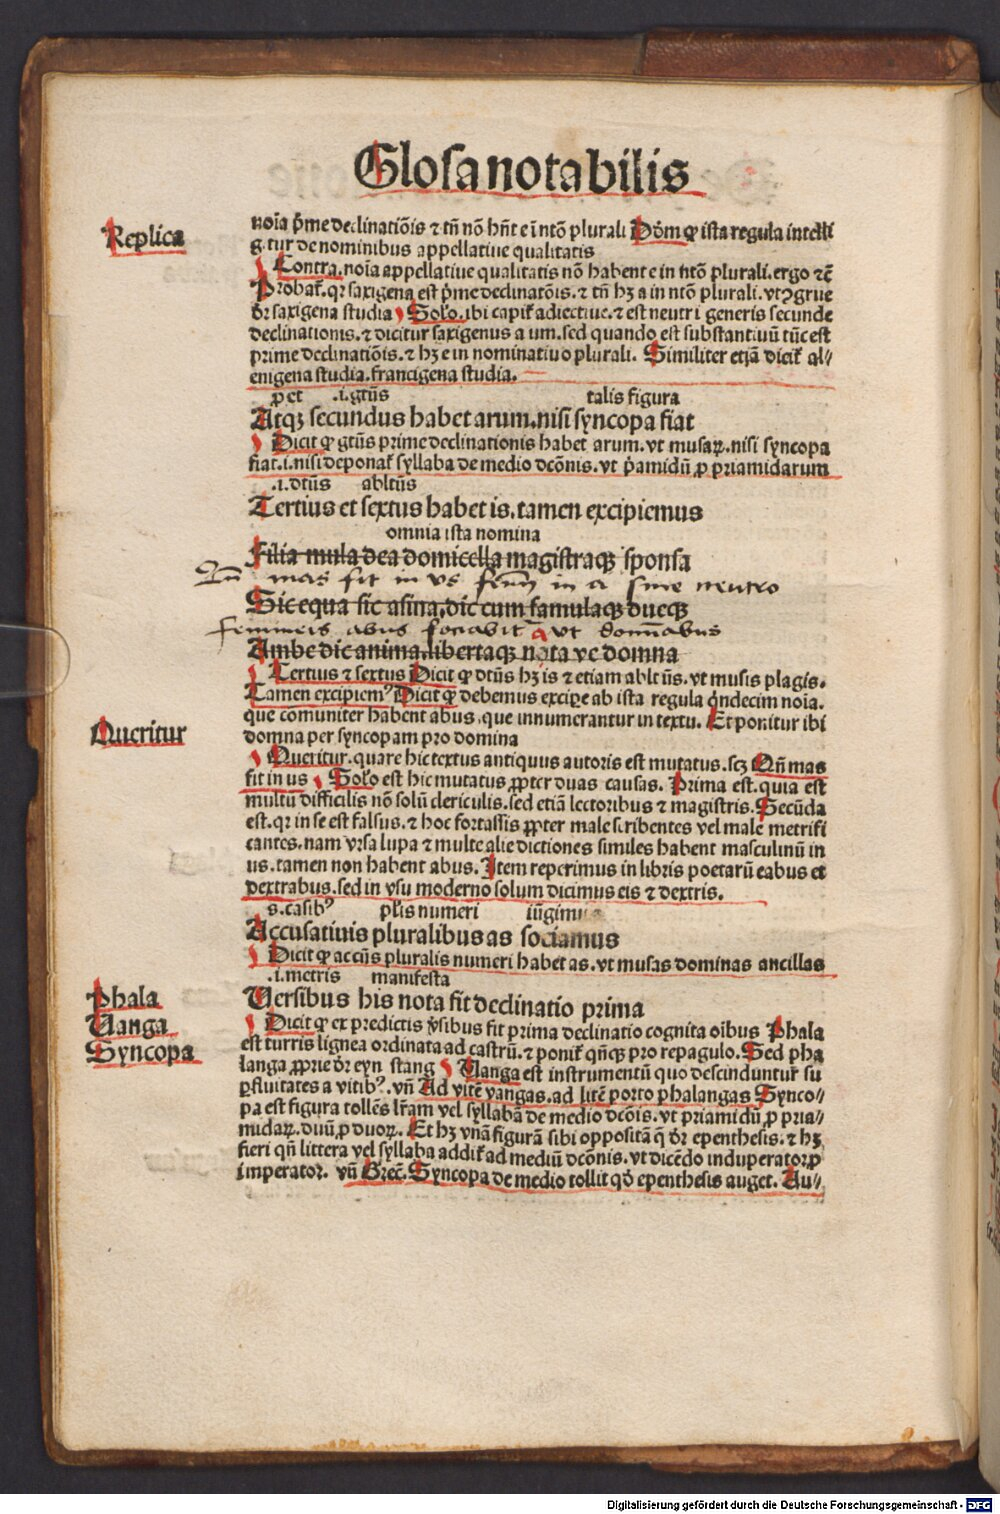 Glosa notabilis
Replica
noīa p̄me declinatiōis ⁊ tn̄ nō hn̄t e ī ntō plurali Dōm ꝙ ista regula intelli
gitur de nominibus appellatiue qualitatis
Contra. noīa appellatiue qualitatis nō habent e in ntō plurali. ergo ⁊c̄
Probaꝉ. qr saxigena est p̄me declinatōis. ⁊ tn̄ hꝫ a in ntō plurali. vt ꝯgrue
dr̄ saxigena studia Solo. ibi capiꝉ adiectiue. ⁊ est neutri generis secunde
declinationis. ⁊ dicitur saxigenus a um. sed quando est substantiuū tūc est
prime declinatiōis. ⁊ hꝫ e in nominatiuo plurali. Similiter etiā diciꝉ al⸗
enigena studia. francigena studia.
ꝓ et .i. gtūs talis figura
Atqꝫ secundus habet arum. nisi syncopa fiat
Dicit ꝙ gtūs prime declinationis habet arum. vt musaꝝ. nisi syncopa
fiat .i. nisi deponaꝉ syllaba de medio dcōnis. vt p̄amidū ꝓ priamidarum
.i. dtūs abltūs
Tertius et sextus habet is. tamen excipiemus
omnia ista nomina
Filia mula dea domicella magistraqꝫ sponsa
Qn̄ mas fit in us femīnū in a sine neutro
Sic equa sic asina, dic cum famulaqꝫ dueqꝫ
Femineis abus sociabit vt domnabus
Ambe dic anima. libertaqꝫ nata ve domna
Tertius ⁊ sextus Dicit ꝙ dtūs hꝫ is ⁊ etiam ablt ūs. vt musis plagis.
Tamen excipiemꝰ Dicit ꝙ debemus exciꝑe ab ista regula qͥndecim noīa.
que cōmuniter habent abus, que innumerantur in textu. Et ponitur ibi
domna per syncopam pro domina
Queritur
Queritur. quare hic textus antiquus autoris est mutatus. scꝫ Qn̄ mas
fit in us Solo est hic mutatus ꝓpter duas causas. Prima est. quia est
multū difficilis nō solū clericulis. sed etiā lectoribus ⁊ magistris. Secūda
est. qr in se est falsus. ⁊ hoc fortassis ꝓpter male scribentes vel male metrifi
cantes. nam vrsa lupa ⁊ multe alie dictiones similes habent masculinū in
us. tamen non habent abus. Item reperimus in libris poetarū eabus et
dextrabus. sed in vsu moderno solum dicimus eis ⁊ dextris.
s. casibꝰ pl̄is numeri iūgimus
Accusatiuis pluralibus as sociamus
Dicit ꝙ accūs pluralis numeri habet as. vt musas dominas ancillas
.i. metris manifesta
Versibus his nota fit declinatio prima
Phala
Vanga
Syncopa
Dicit ꝙ ex predictis v̓sibus fit prima declinatio cognita oībus Phala
est turris lignea ordinata ad castrū. ⁊ poniꝉ qn̄qꝫ pro repagulo. Sed pha
langa ꝓprie dr̄ eyn stang Vanga est instrumentū quo descinduntur su
ꝑfluitates a vitibꝰ. vn̄ Ad vitē vangas. ad litē porto phalangas Synco⸗
pa est figura tollēs lr̄am vel syllabā de medio dcōis. vt priamidū ꝓ pria⸗
midaꝝ. duū ꝓ duoꝝ. Et hꝫ vnā figurā sibi oppositā q̄ dr̄ epenthesis. ⁊ hꝫ
fieri qn̄ littera vel syllaba addiꝉ ad mediū dcōnis. vt dicēdo induperator ꝓ
imperator. vn̄ Grec̄. Syncopa de medio tollit qd̄ epenthesis auget. Au⸗
Digitalisierung gefördert durch die Deutsche Forschungsgemeinschaft - DFG